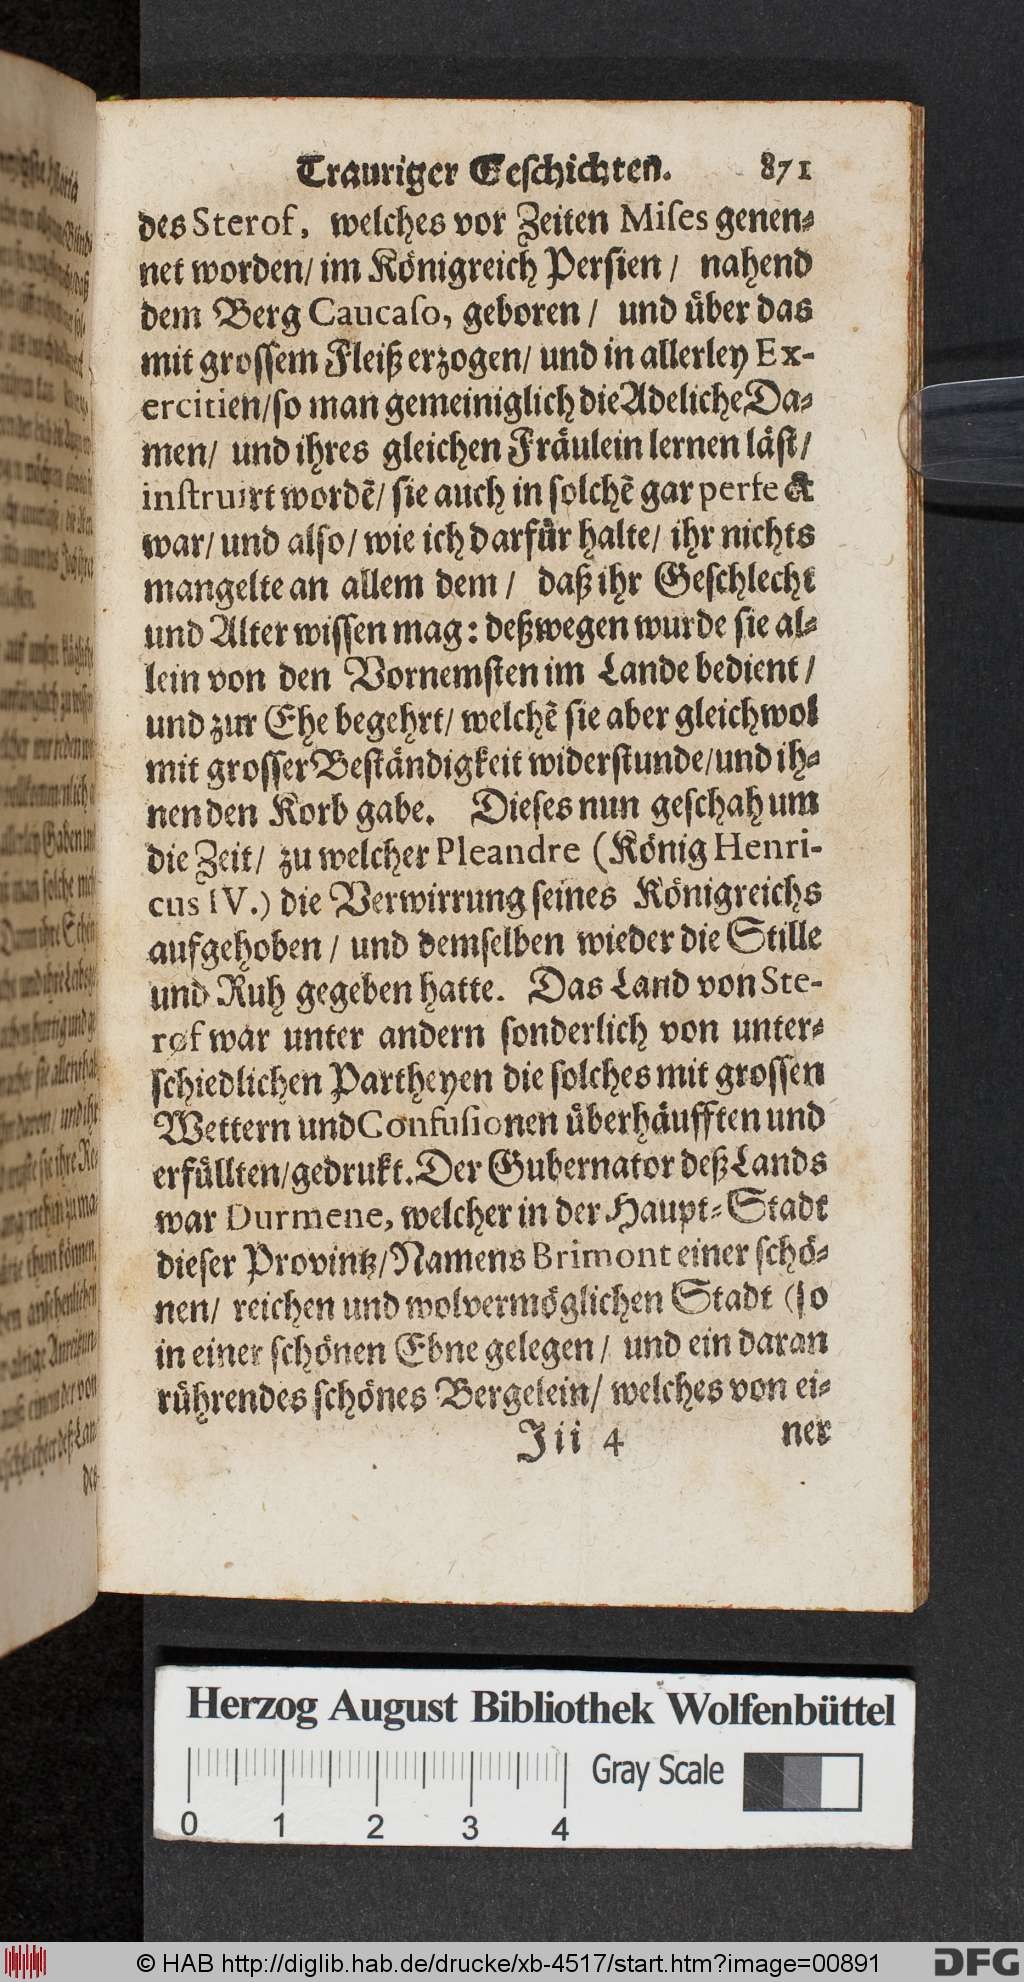 Trauriger Geschichten. 871
des Sterof, welches vor Zeiten Miſes genen⸗
net worden/ im Königreich Perſien/ nahend
dem Berg Caucaſo, geboren/ und über das
mit groſſem Fleiß erzogen/ und in allerley Ex-
ercitien/ſo man gemeiniglich die Adeliche Da⸗
men/ und ihres gleichen Fräulein lernen läſt/
inſtruirt wordẽ/ ſie auch in ſolchẽ gar perfect
war/ und alſo/ wie ich darfür halte/ ihr nichts
mangelte an allem dem/ daß ihr Geſchlecht
und Alter wiſſen mag: deßwegen wurde ſie al⸗
lein von den Vornemſten im Lande bedient/
und zur Ehe begehrt/ welchẽ ſie aber gleichwol
mit groſſer Beſtändigkeit widerſtunde/und ih⸗
nen den Korb gabe. Dieſes nun geſchah um
die Zeit/ zu welcher Pleandre (König Henri-
cus IV.) die Verwirrung ſeines Königreichs
aufgehoben/ und demſelben wieder die Stille
und Ruh gegeben hatte. Das Land von Ste-
rof war unter andern ſonderlich von unter⸗
ſchiedlichen Partheyen die ſolches mit groſſen
Wettern und Confuſionen überhäufften und
erfüllten/gedrukt. Der Gubernator deß Lands
war Durmene, welcher in der Haupt⸗Stadt
dieſer Provintz/Namens Brimont einer ſchö⸗
nen/ reichen und wolvermöglichen Stadt (ſo
in einer ſchönen Ebne gelegen/ und ein daran
rührendes ſchönes Bergelein/ welches von ei⸗
Jii 4 ner
Herzog August Bibliothek Wolfenbüttel
Gray Scale
0 1 2 3 4
© HAB http://diglib.hab.de/drucke/xb-4517/start.htm?image=00891
DFG